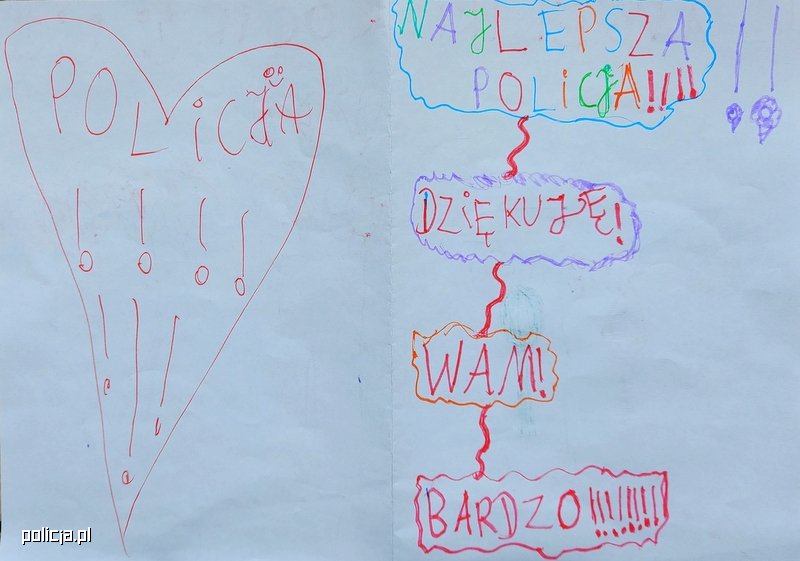 POLICJA
! ! ! !
! ! !
NAJLEPSZA
POLICJA!!!! !!
DZIĘKUJĘ!
WAM!
BARDZO!!!!!!!!
policja.pl